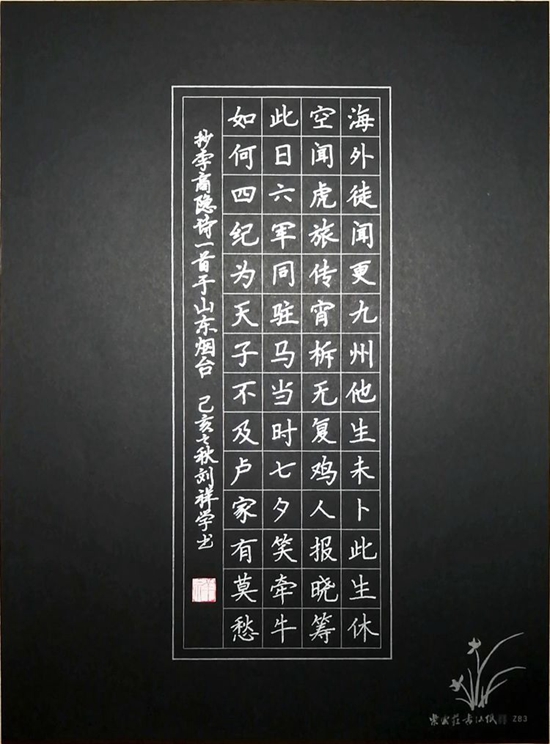 海外徒闻更九州他生未卜此生休
空闻虎旅传宵柝无复鸡人报晓筹
此日六军同驻马当时七夕笑牵牛
如何四纪为天子不及卢家有莫愁
抄李商隐诗一首于山东烟台 己亥之秋刘祥学书
ZB3